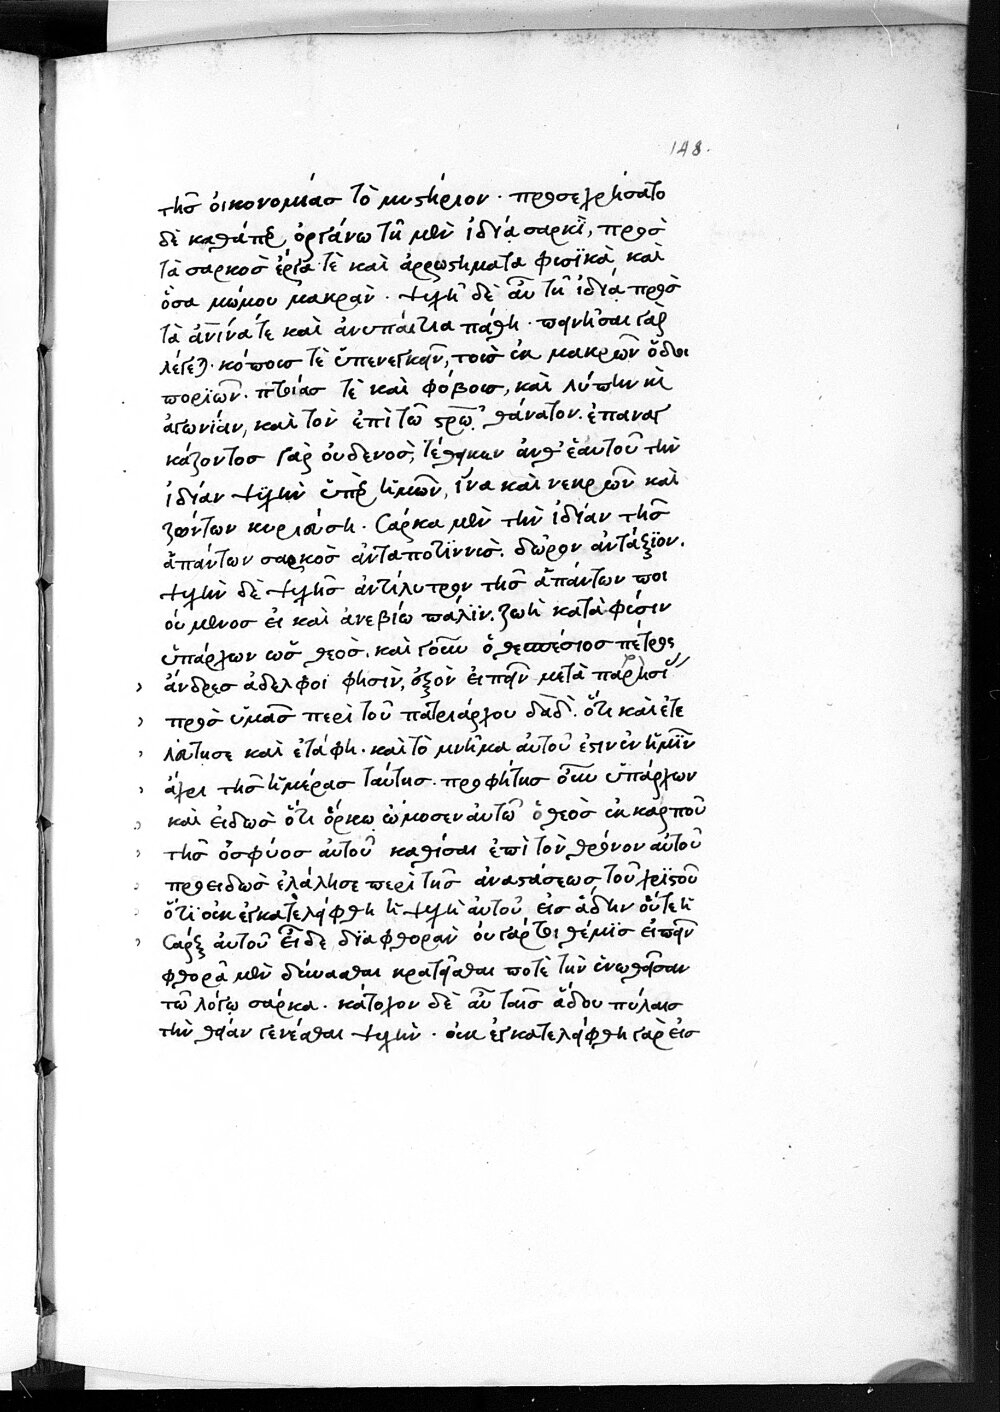 148.
τῆς οἰκονομίας τὸ μυστήριον· προσεχρήσατο
δὲ καθάπερ ὀργάνω τῆ μὲν ἰδία σαρκὶ, πρὸς
τὰ σαρκὸς ἔργα τὲ καὶ ἀρρωστήματα φυσϊκὰ καὶ
ὅσα μώμου μακρὰν· ψυχῆ δὲ αὖ τῆ ἰδία πρὸς
τὰ ἀνθρώπινά τε καὶ ἀνυπαίτια πάθη· πεινῆσαι γὰρ
λέγεται· κόποις τὲ ὑπενεγκεῖν, τοῖς ἐκ μακρῶν ὁδοι
ποριῶν· πτοίας τὲ καὶ φόβοις, καὶ λύπην καὶ
ἀγωνίαν, καὶ τὸν ἐπὶ τῶ σταυρῶ θάνατον. ἐπαναγ
κάζοντος γὰρ οὐδενὸς, τέθεικεν ἀνθ' ἑαυτοῦ τὴν
ἰδίαν ψυχὴν ὑπὲρ ἡμῶν, ἵνα καὶ νεκρῶν καὶ
ζώντων κυριεύση. Σάρκα μὲν τὴν ἰδίαν τῆς
ἁπάντων σαρκὸς ἀνταποτιννὺς. δῶρον ἀντάξϊον.
ψυχὴν δὲ ψυχῆς ἀντίλυτρον τῆς ἁπάντων ποι
ούμενος εἰ καὶ ἀνεβίω πάλϊν. ζωὴ κατὰ φύσιν
ὑπάρχων ὡς θεὸς. καὶ γοῦν ὁ θεσπέσιος πέτρος
ἄνδρες ἀδελφοὶ φησὶν, ἐξὸν εἰπεῖν μετὰ παρρησί
πρὸς ὑμᾶς περὶ τοῦ πατριάρχου δαδ. ὅτι καὶ ἐτε
λεύτησε καὶ ἐτάφη· καὶ τὸ μνῆμα αὐτοῦ ἐστὶν ἐν ἡμῖν
ἄχρι τῆς ἡμέρας ταύτης. προφήτης οὖν ὑπάρχων
καὶ εἰδὼς ὅτι ὅρκω ὤμοσεν αὐτῶ ὁ θεὸς ἐκ καρποῦ
τῆς ὀσφύος αὐτοῦ καθίσαι ἐπὶ τὸν θρόνον αὐτοῦ
προειδὼς ἐλάλησε περὶ τῆς ἀναστάσεως τοῦ χριστοῦ
ὅτϊ οὐκ ἐγκατελείφθη ἡ ψυχὴ αὐτοῦ εἰς ἅδην οὔτε ἡ
Σὰρξ αὐτοῦ εἶδε δϊαφθορὰν οὐ γάρ τοι θέμις εἰπεῖν
φθορᾶ μὲν δύνασθαι κρατεῖσθαι ποτὲ τὴν ἑνωθεῖσαν
τῶ λόγω σάρκα. κάτοχον δὲ αὖ ταῖς ἅδου πύλαις
τὴν θείαν γενέσθαι ψυχὴν· οὐκ ἐγκατελείφθη γὰρ εἰς